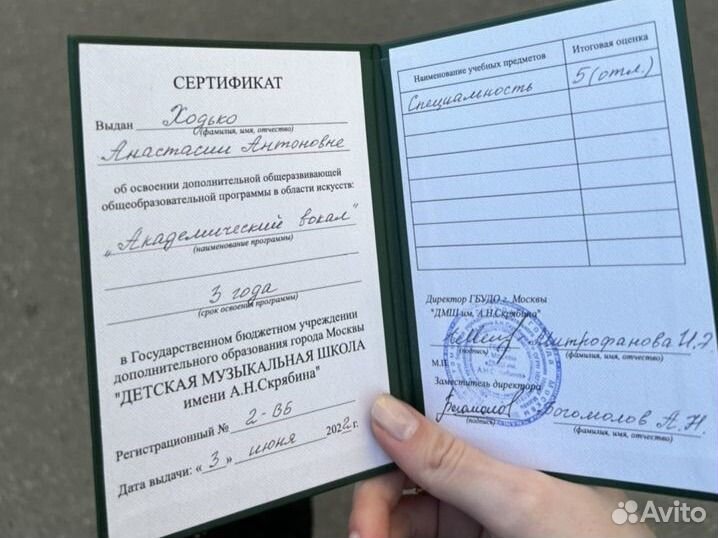 СЕРТИФИКАТ
Выдан Ходько
(фамилия, имя, отчество)
Анастасии Антоновне
об освоении дополнительной общеразвивающей
общеобразовательной программы в области искусств:
„Академический вокал"
(наименование программы)
3 года
(срок освоения программы)
в Государственном бюджетном учреждении
дополнительного образования города Москвы
"ДЕТСКАЯ МУЗЫКАЛЬНАЯ ШКОЛА
имени А.Н.Скрябина"
Регистрационный № 2-ВБ
Дата выдачи: «3» июня 2022 г.
Наименование учебных предметов Итоговая оценка
Специальность 5 (отл.)
Директор ГБУДО г. Москвы
"ДМШ им. А.Н.Скрябина"
Митрофанова И.Э.
(подпись) (фамилия, имя, отчество)
М.П.
Заместитель директора
Богомолов А.Н.
(подпись) (фамилия, имя, отчество)
Avito